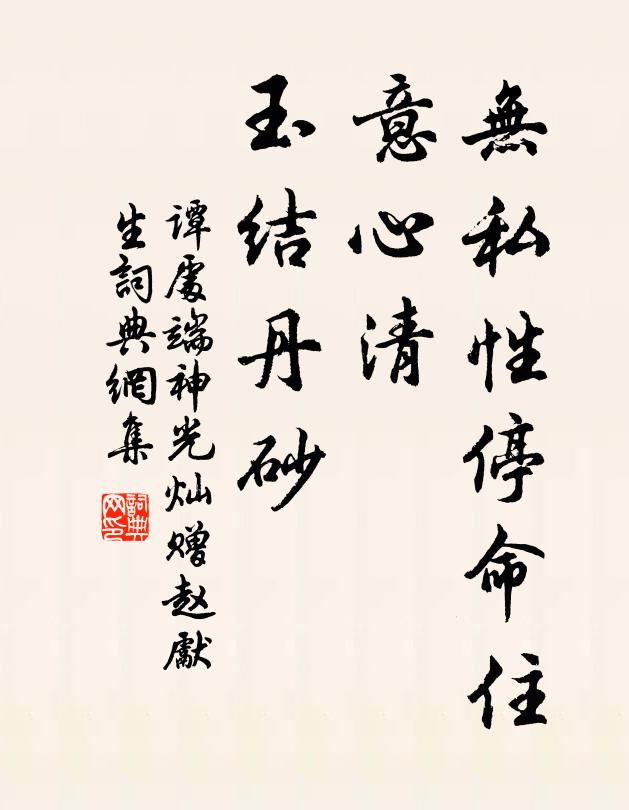 無私性停命住
意心清
玉結丹砂
谭處端神光灿赠赵獻
生詞典網集
詞典
网印